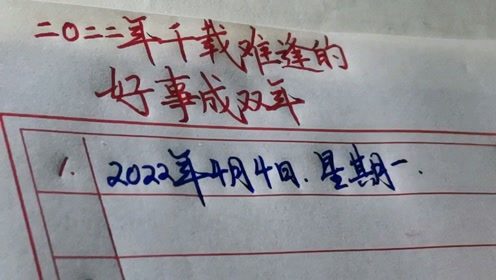 二〇二二年千载难逢的
好事成双年
1. 2022年4月4日.星期一.